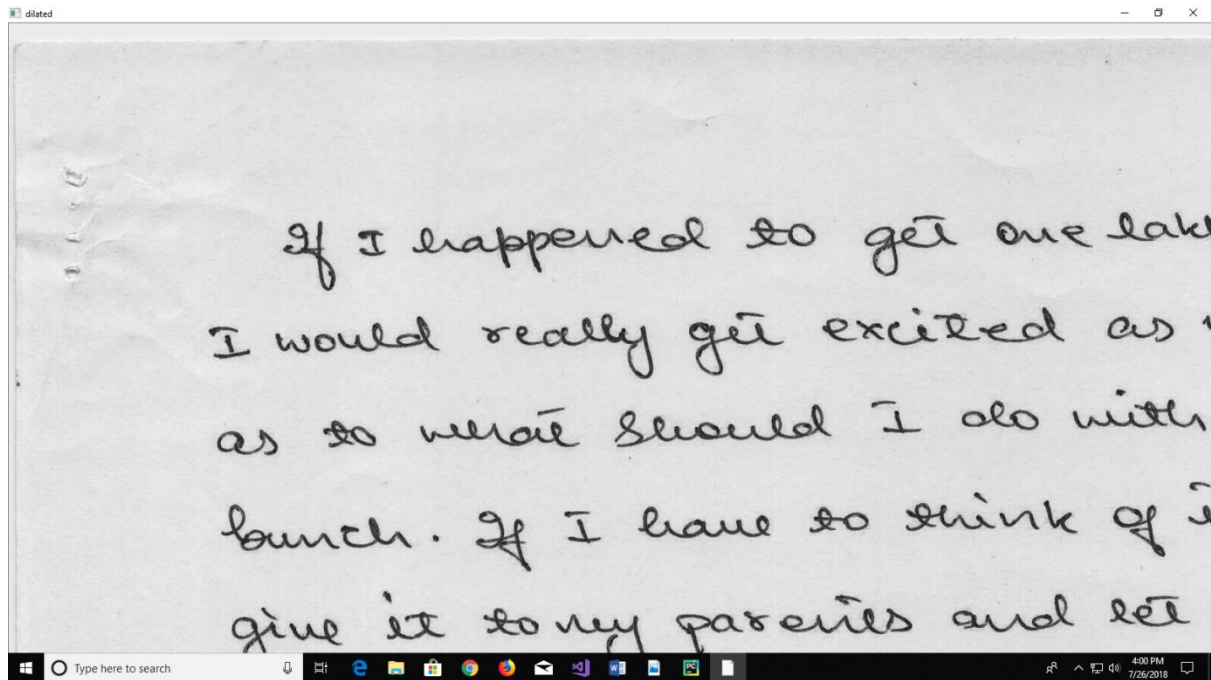 dilated
If I happened to get one lak
I would really get excited as
as to what should I do with
bunch. If I have to think of
give it to my parents and let
Type here to search
4:00 PM
7/26/2018